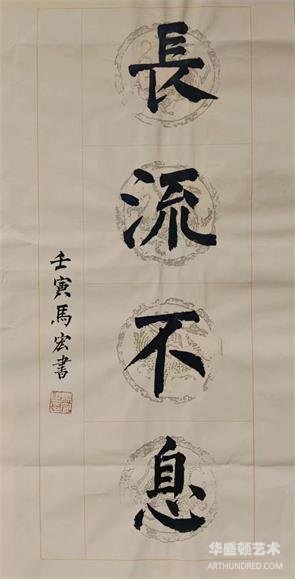 長流不息
壬寅馬宏書
华盛顿艺术
ARTHUNDRED.COM